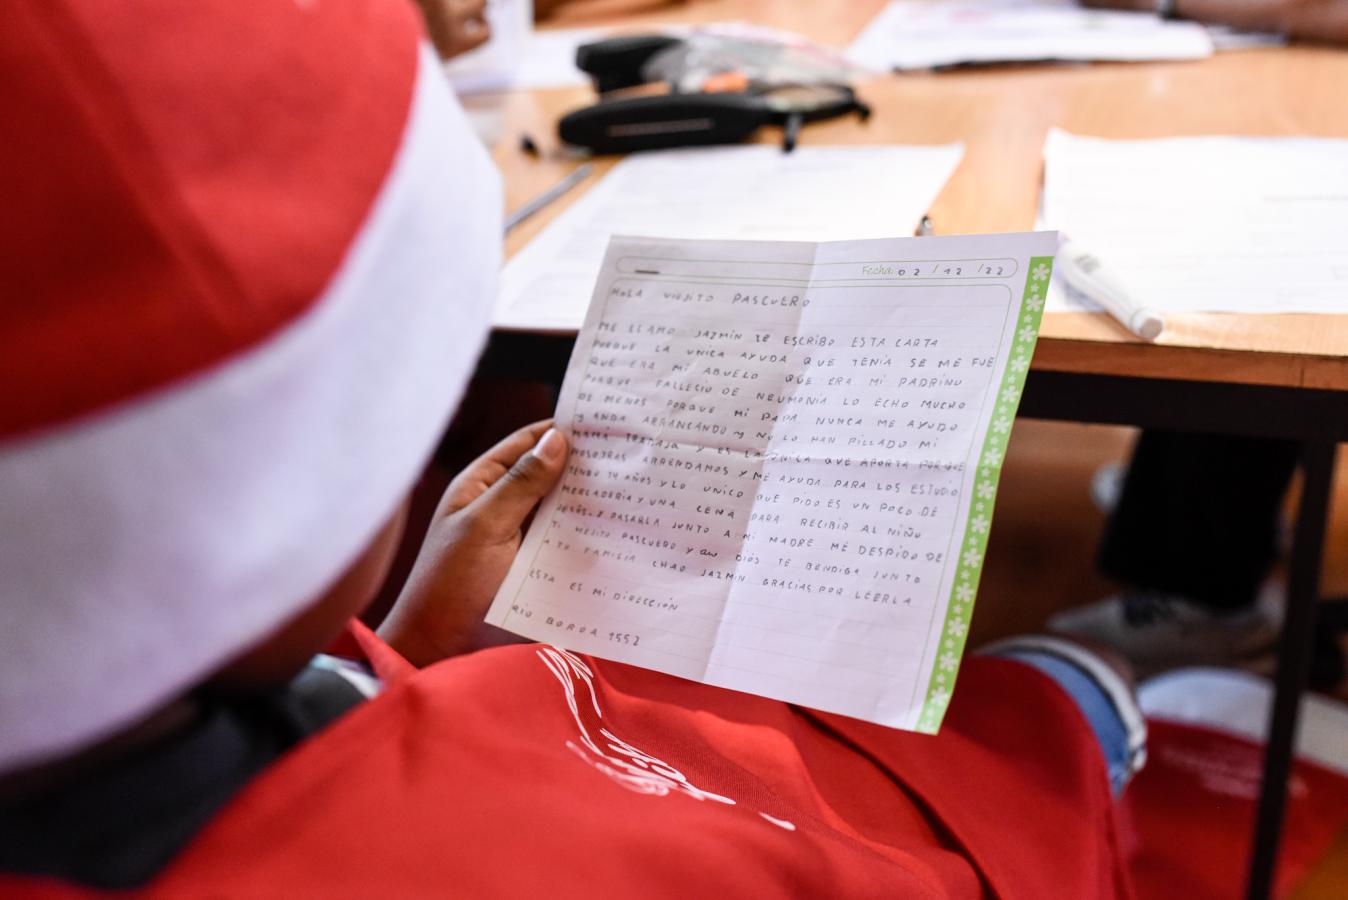 Fecha: 02 / 12 / 22
HOLA VIEJITO PASCUERO
ME LLAMO JAZMIN TE ESCRIBO ESTA CARTA
PORQUE LA UNICA AYUDA QUE TENIA SE ME FUE
QUE ERA MI ABUELO QUE ERA MI PADRINO
PORQUE FALLECIO DE NEUMONIA LO ECHO MUCHO
DE MENOS PORQUE MI PAPA NUNCA ME AYUDO
Y ANDA ARRANCANDO Y NO LO HAN PILLADO MI
MAMÁ TRABAJA Y ES LA UNICA QUE APORTA PORQUE
NOSOTRAS ARRENDAMOS Y ME AYUDA PARA LOS ESTUDIO
TENGO 14 AÑOS Y LO UNICO QUE PIDO ES UN POCO DE
MERCADERIA Y UNA CENA PARA RECIBIR AL NIÑO
JESÚS Y PASARLA JUNTO A MI MADRE ME DESPIDO DE
TI VIEJITO PASCUERO Y QUE DIOS TE BENDIGA JUNTO
A TU FAMILIA CHAO JAZMIN GRACIAS POR LEERLA
ESTA ES MI DIRECCIÓN
RIO 1552